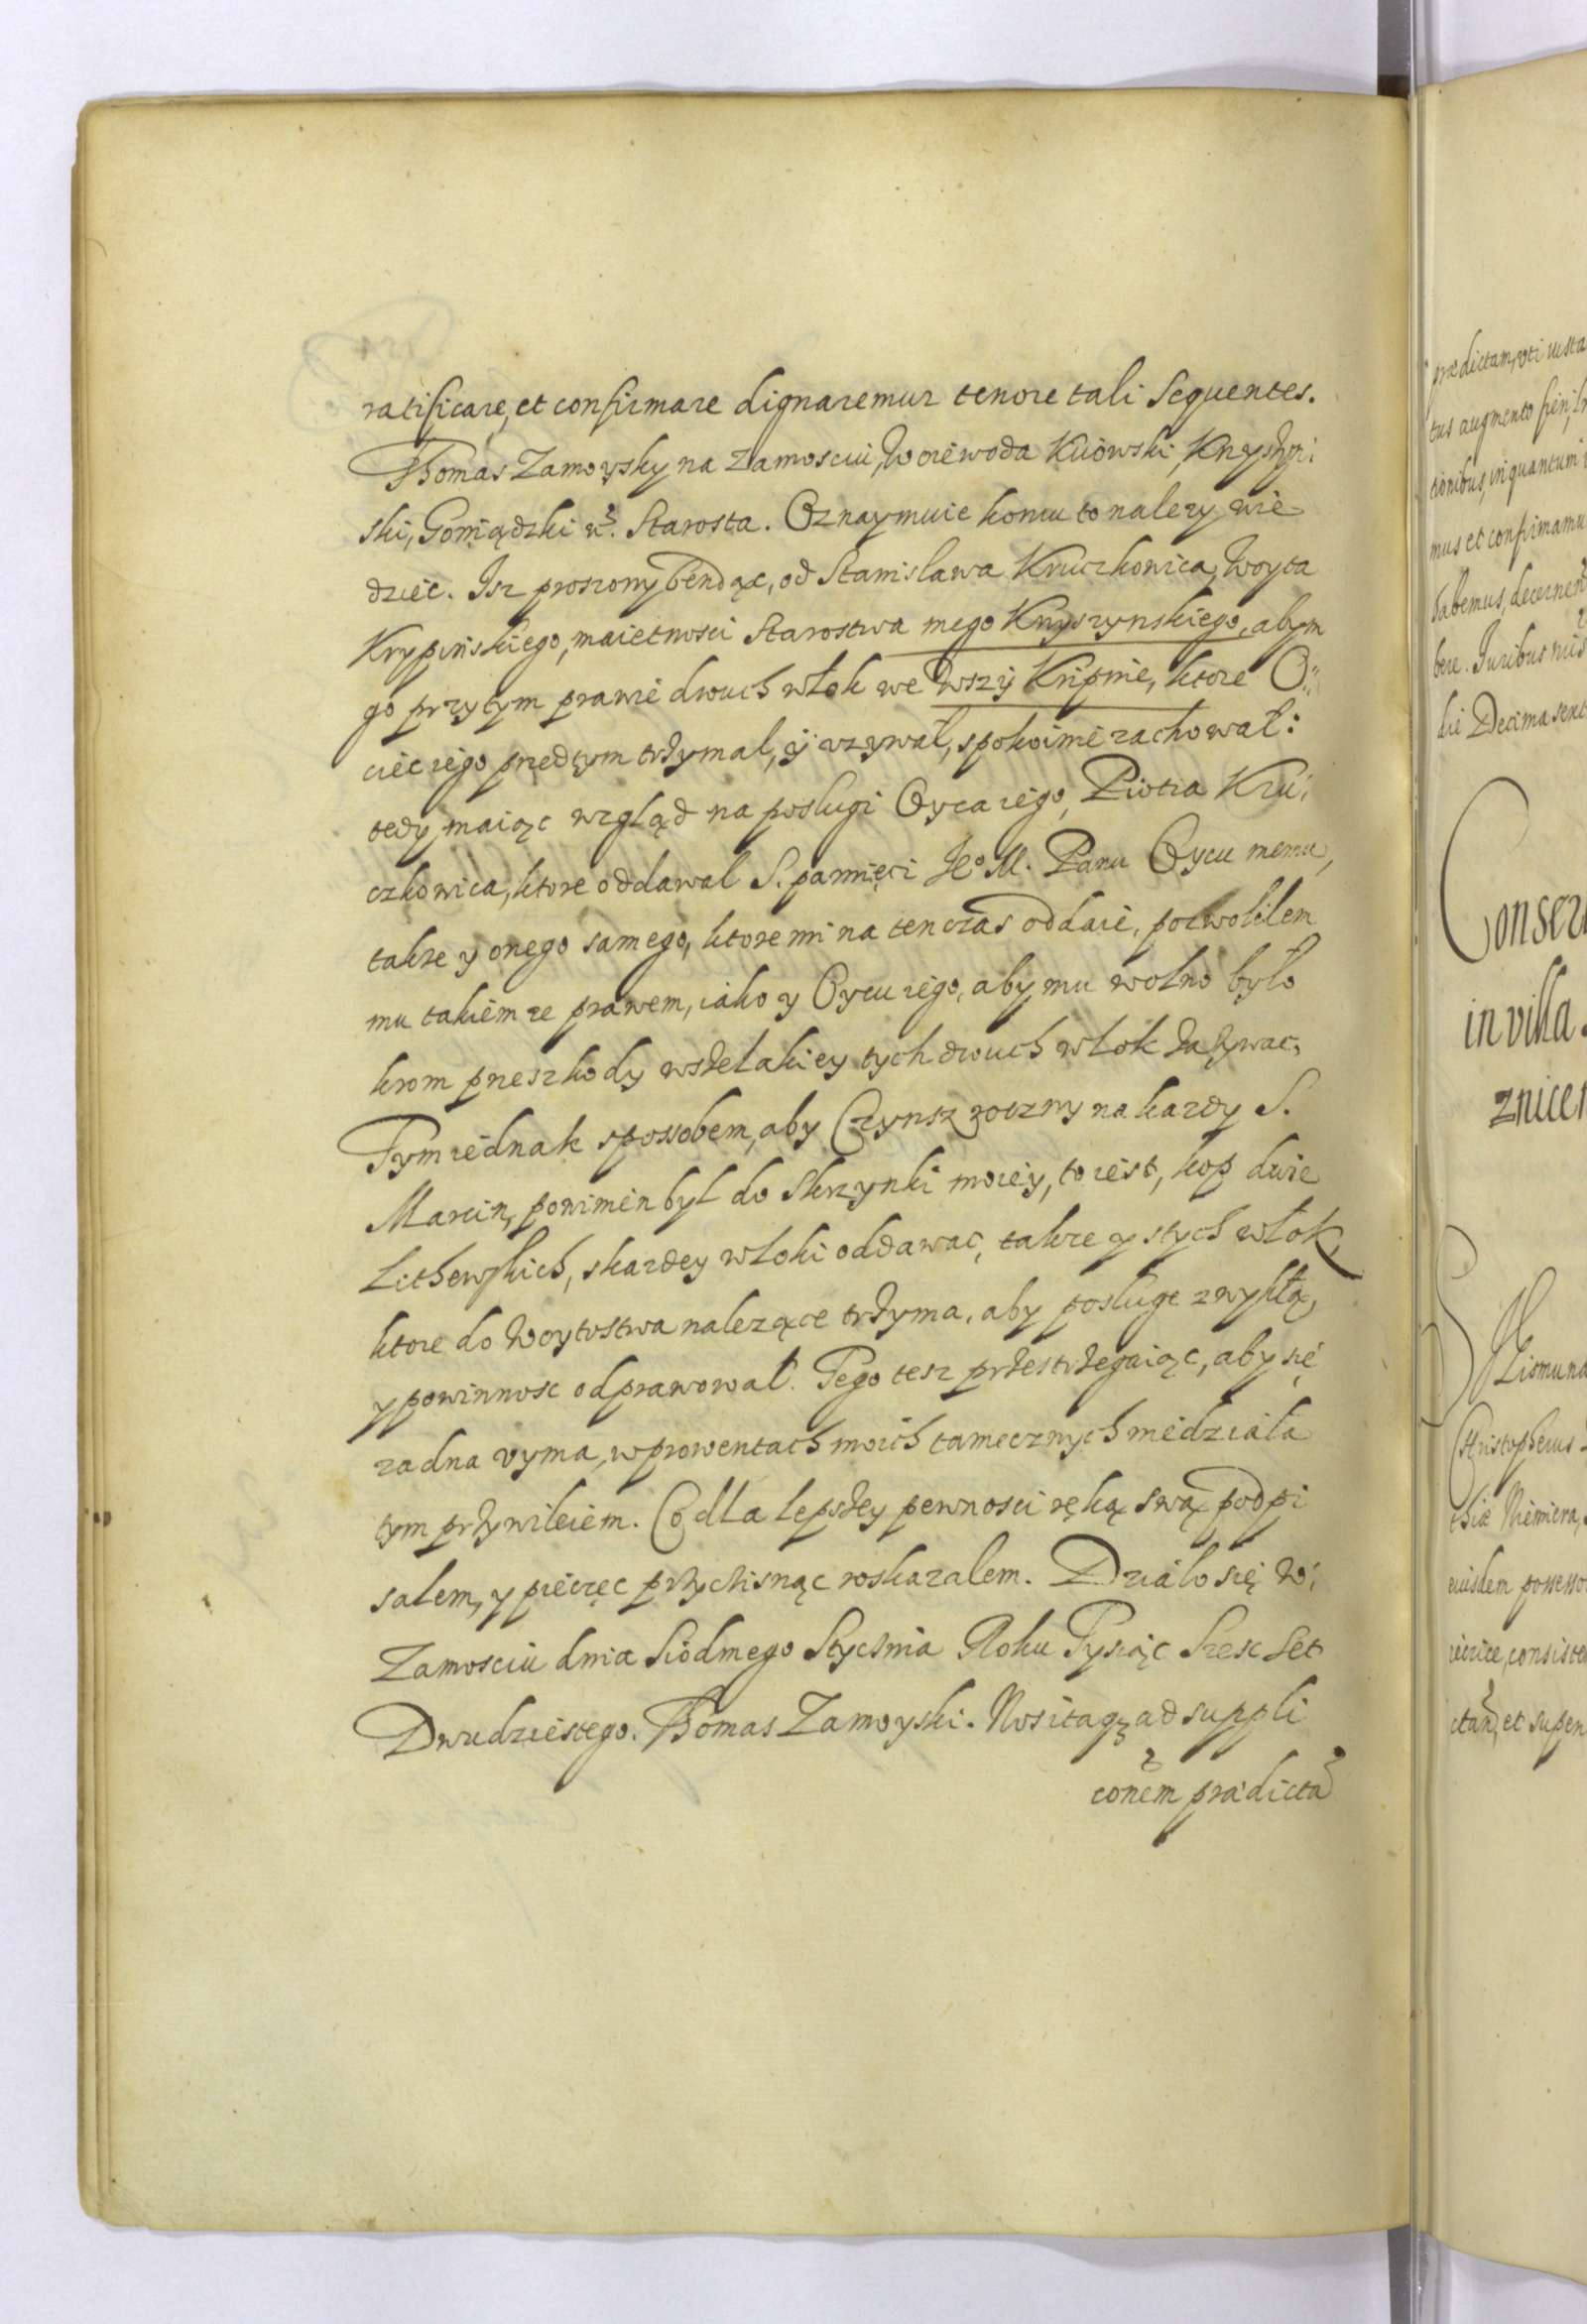 ratificare, et confirmare dignaremur tenore tali sequentes.
Thomas Zamoysky na Zamosciu, Woiewoda Kiiowski, Knyszyn
ski, Goniądzki etc. Starosta. Oznaymuie komu to nalezy wie
dziec. Isz proszony bendąc, od Stanislawa Kruczkowica, Woyta
Krypinskiego, maietnosci Starostwa mego Knyszynskiego, abym
go przy tym prawie dwuch włok we wszy Kripnie, ktore O
ciec iego przedtym trzymal, ÿ uzywał, spokoinie zachował:
tedy maiąc wzgląd na poslugi Oyca iego, Piotra Kru
czkowica, ktore oddawal S. pamięci Je° M. Panu Oycu memu,
takze y onego samego, ktore mi na ten czas oddaie, pozwolilem
mu takiemze prawem, iako y Oycu iego, aby mu wolno było
krom przeszkody wszelakiey tych dwuch włok zazywac,
Tym iednak sposobem, aby Czynsz roczny na kazdy S.
Marcin, powinien byl do Skrzynki moiey, to iest, kop dwie
Lithewskich, skazdey wloki oddawac, takze y stych włok,
ktore do Woytostwa nalezące trzyma, aby posluge zwykłą,
y powinnosc odprawował. Tego tesz przestrzegaiąc, aby się
zadna uyma, w prowentach moich tamecznych niedziała
tym przywileiem. Co dla lepszey pewnosci ręką swą podpi
salem, y pieczęc przycisnąc roskazalem. Działo się w
Zamosciu dnia Siodmego Stycznia Roku Tysiąc Szesc Set
Dwudziestego. Thomas Zamoyski. Nos itaq3 ad suppli
conem prædicta
prædictam, uti iusta
tus augmento
tionibus, in quantum
mus et confirmamu
habemus, decernen
bere. Iuribus
die Decima sext
Conser
in villa
znicen
Christopherus
thiæ Niemiera,
eiusdem possesso
consiste
et super